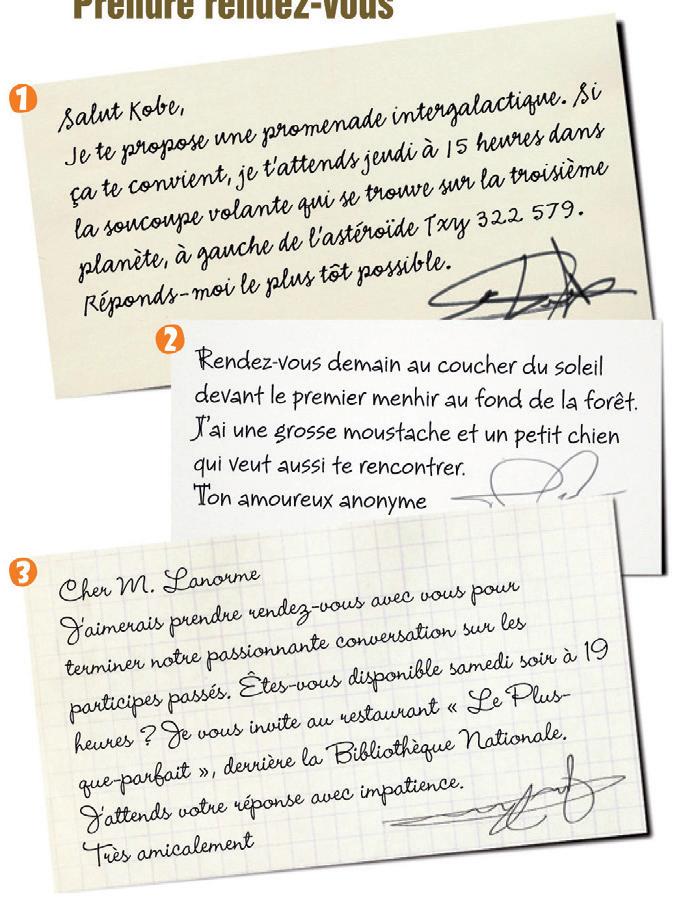 Prendre rendez-vous
1
Salut Kobe,
Je te propose une promenade intergalactique. Si
ça te convient, je t'attends jeudi à 15 heures dans
la soucoupe volante qui se trouve sur la troisième
planète, à gauche de l'astéroïde Txy 322 579.
Réponds-moi le plus tôt possible.
2
Rendez-vous demain au coucher du soleil
devant le premier menhir au fond de la forêt.
J'ai une grosse moustache et un petit chien
qui veut aussi te rencontrer.
Ton amoureux anonyme
3
Cher M. Lanorme
J'aimerais prendre rendez-vous avec vous pour
terminer notre passionnante conversation sur les
participes passés. Êtes-vous disponible samedi soir à 19
heures ? Je vous invite au restaurant « Le Plus-
que-parfait », derrière la Bibliothèque Nationale.
J'attends votre réponse avec impatience.
Très amicalement